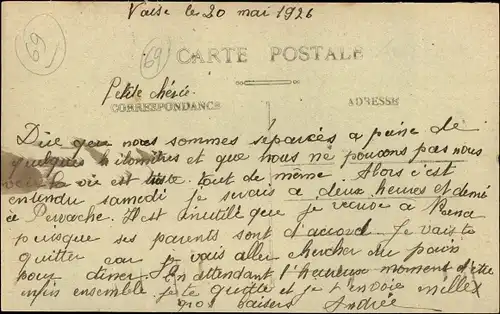 Vaise le 20 mai 1926
69
69
CARTE POSTALE
Petite chérie
CORRESPONDANCE
ADRESSE
Dire que nous sommes séparées a peine de
quelques kilomètres et que nous ne pouvons pas nous
voir la vie est triste tout de même. Alors c'est
entendu samedi je serais a deux heures et demie
à Perrache. Il est inutile que je récrive à
puisque ses parents sont d'accord. Je vais te
quitter car je vais aller chercher du pain
pour diner. En attendant l'heureux moment d'être
enfin ensemble je te quitte et je t'envoie milles
gros baisers Andrée